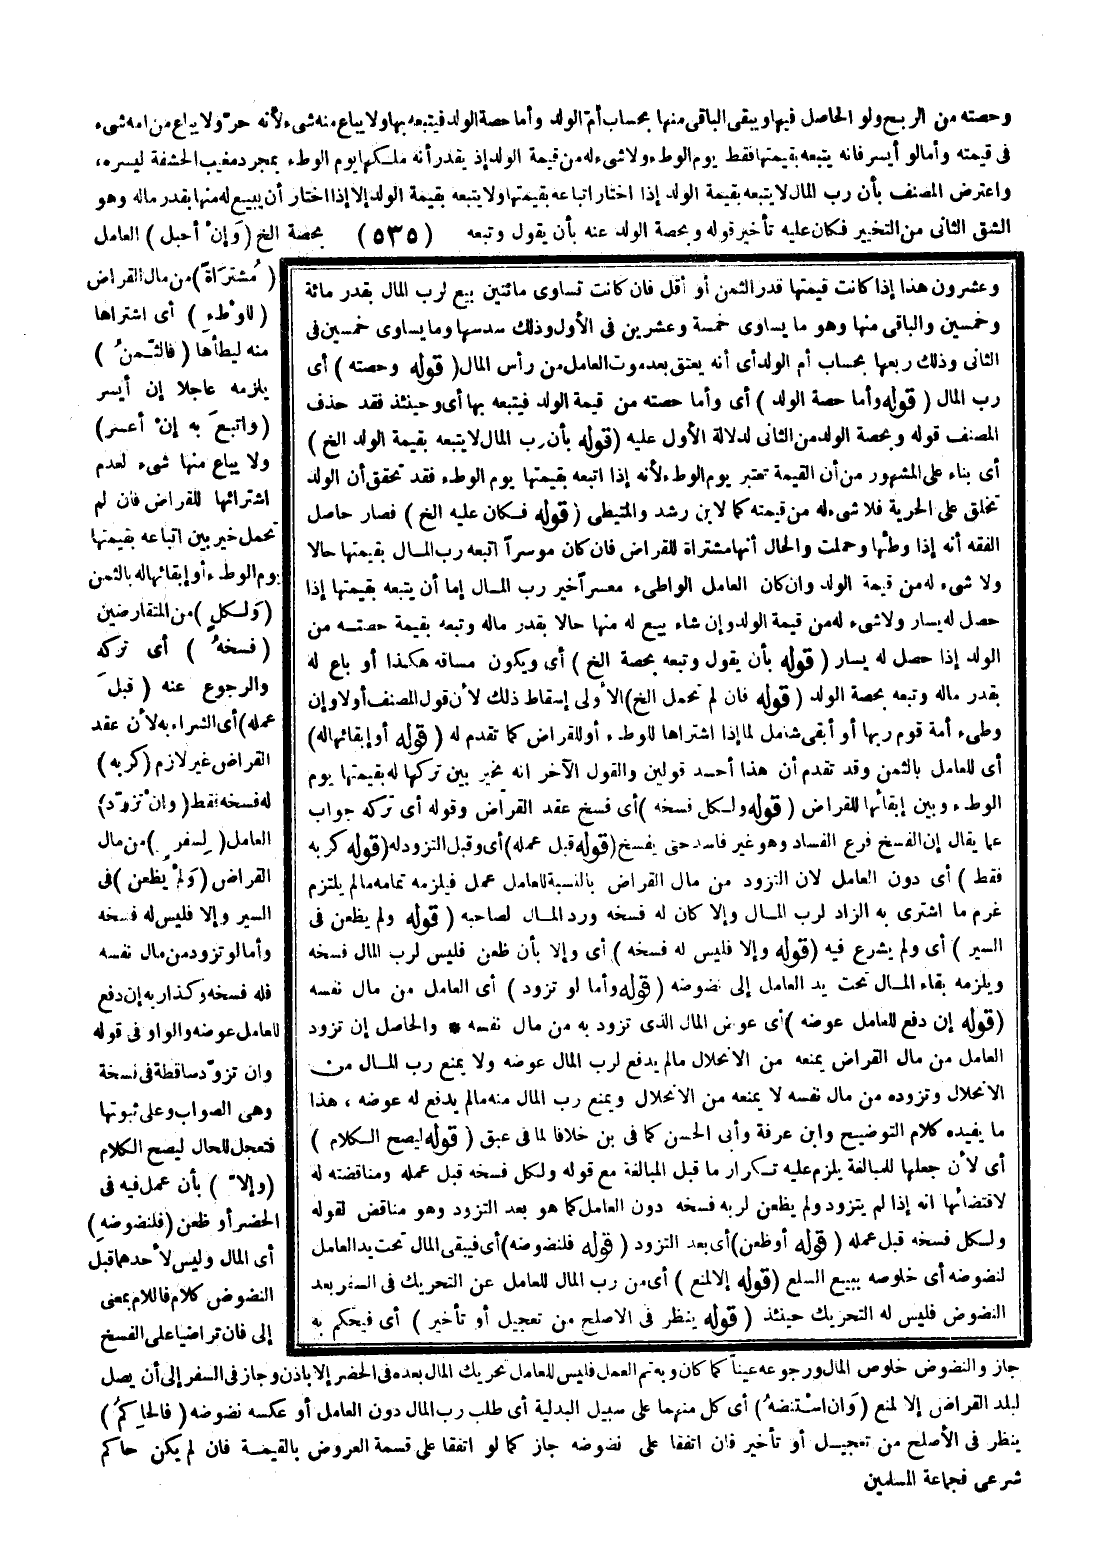 وحصته من الربح ولو الحاصل فيها ويبقى الباقى منها بحساب أم الولد وأما حصة الولد فيتبعه بها ولا يباع منه شىء لأنه حرّ ولا يباع من امه شىء
فى قيمته وأمالو أيسر فانه يتبعه بقيمتها فقط يوم الوطء ولاشىء له من قيمة الولد إذ يقدر أنه ملكها يوم الوطء بمجرد مغيب الحشفة ليسره،
واعترض المصنف بأن رب المال لا يتبعه بقيمة الولد إذا اختار اتباعه بقيمتها ولا يتبعه بقيمة الولد إلا إذا اختار أن يبيع له منها بقدر ماله وهو
الشق الثانى من التخيير فكان عليه تأخير قوله وبحصة الولد عنه بأن يقول وتبعه (٥٣٥) بحصة الخ (وَإنْ أحبل) العامل
(مُشتَرَاةً) من مال القراض
(للوَطْءِ) أى اشتراها
منه ليطأها (فالثّمنُ)
يلزمه عاجلا إن أيسر
(واتبعَ به إنْ أعسر)
ولا يباع منها شىء لعدم
اشترائها للقراض فان لم
تحمل خير بين اتباعه بقيمتها
يوم الوطء أو إبقائها له بالثمن
(وَلكلٍ) من المتقارضين
(فسخهُ) أى تركه
والرجوع عنه (قبلَ
عمله) أى الشراء به لأن عقد
القراض غير لازم (كربه)
له فسخه فقط (وإنْ تزوّد)
العامل (لِسفرٍ) من مال
القراض (وَلمْ يظعن) فى
السير وإلا فليس له فسخه
وأمالو تزود من مال نفسه
فله فسخه وكذا ربه إن دفع
للعامل عوضه والواو فى قوله
وان تزوّد ساقطة فى نسخة
وهى الصواب وعلى ثبوتها
فتجعل للحال ليصح الكلام
(وإلاّ) بأن عمل فيه فى
الحضر أو ظعن (فلنضوضهِ)
أى المال وليس لأحدهما قبل
النضوض كلام فاللام بمعنى
إلى فان تراضيا على الفسخ
وعشرون هذا إذا كانت قيمتها قدر الثمن أو أقل فان كانت تساوى مائتين بيع لرب المال بقدر مائة
وخمسين والباقى منها وهو ما يساوى خمسة وعشرين فى الأول وذلك سدسها وما يساوى خمسين فى
الثانى وذلك ربعها بحساب أم الولد أى أنه يعتق بعد موت العامل من رأس المال (قوله وحصته) أى
رب المال (قوله وأما حصة الولد) أى وأما حصته من قيمة الولد فيتبعه بها أى وحينئذ فقد حذف
المصنف قوله وبحصة الولد من الثانى لدلالة الأول عليه (قوله بأن رب المال لا يتبعه بقيمة الولد الخ)
أى بناء على المشهور من أن القيمة تعتبر يوم الوطء لأنه إذا اتبعه بقيمتها يوم الوطء فقد تحقق أن الولد
تخلق على الحرية فلا شىء له من قيمته كما لابن رشد والمتيطى (قوله فكان عليه الخ) فصار حاصل
الفقه أنه إذا وطئها وحملت والحال أنها مشتراة للقراض فان كان موسراً اتبعه رب المال بقيمتها حالا
ولا شىء له من قيمة الولد وان كان العامل الواطىء معسرا خير رب المال إما أن يتبعه بقيمتها إذا
حصل له يسار ولاشىء له من قيمة الولد وإن شاء بيع له منها حالا بقدر ماله وتبعه بقيمة حصته من
الولد إذا حصل له يسار (قوله بأن يقول وتبعه بحصة الخ) أى ويكون مساقه هكذا أو باع له
بقدر ماله وتبعه بحصة الولد (قوله فان لم تحمل الخ) الأولى إسقاط ذلك لأن قول المصنف أولا وإن
وطىء أمة قوم ربها أو أبقى شامل لما إذا اشتراها للوطء أو للقراض كما تقدم له (قوله أو إبقائها له)
أى للعامل بالثمن وقد تقدم أن هذا أحد قولين والقول الآخر انه يخير بين تركها له بقيمتها يوم
الوطء وبين إبقائها للقراض (قوله ولكل فسخه) أى فسخ عقد القراض وقوله أى تركه جواب
عما يقال إن الفسخ فرع الفساد وهو غير فاسد حتى يفسخ (قوله قبل عمله) أى وقبل التزود له (قوله كربه
فقط) أى دون العامل لان التزود من مال القراض بالنسبة للعامل عمل فيلزمه تمامه مالم يلتزم
غرم ما اشترى به الزاد لرب المال وإلا كان له فسخه ورد المال لصاحبه (قوله ولم يظعن فى
السير) أى ولم يشرع فيه (قوله وإلا فليس له فسخه) أى وإلا بأن ظعن فليس لرب المال فسخه
ويلزمه بقاء المال تحت يد العامل إلى نضوضه (قوله وأما لو تزود) أى العامل من مال نفسه
(قوله إن دفع للعامل عوضه) أى عوض المال الذى تزود به من مال نفسه * والحاصل إن تزود
العامل من مال القراض يمنعه من الانحلال مالم يدفع لرب المال عوضه ولا يمنع رب المال من
الانحلال وتزوده من مال نفسه لا يمنعه من الانحلال ويمنع رب المال منه مالم يدفع له عوضه ، هذا
ما يفيده كلام التوضيح وابن عرفة وأبى الحسن كما فى بن خلافا لما فى عبق (قوله ليصح الكلام)
أى لأن جعلها للمبالغة يلزم عليه تكرار ما قبل المبالغة مع قوله ولكل فسخه قبل عمله ومناقضته له
لاقتضائها انه إذا لم يتزود ولم يظعن لربه فسخه دون العامل كما هو بعد التزود وهو مناقض لقوله
ولكل فسخه قبل عمله (قوله أو ظعن) أى بعد التزود (قوله فلنضوضه) أى فيبقى المال تحت يد العامل
لنضوضه أى خلوصه ببيع السلع (قوله إلا لمنع) أى من رب المال للعامل عن التحريك فى السفر بعد
النضوض فليس له التحريك حينئذ (قوله ينظر فى الاصلح من تعجيل أو تأخير) أى فيحكم به
جاز والنضوض خلوص المال ورجوعه عيناً كما كان وبه تم العمل فليس للعامل تحريك المال بعده فى الحضر إلا باذن وجاز فى السفر إلى أن يصل
لبلد القراض إلا لمنع (وَان اسْتنضهُ) أى كل منهما على سبيل البدلية أى طلب رب المال دون العامل أو عكسه نضوضه (فالحاكمُ)
ينظر فى الأصلح من تعجيل أو تأخير فان اتفقا على نضوضه جاز كما لو اتفقا على قسمة العروض بالقيمة فان لم يكن حاكم
شرعى فجماعة المسلمين